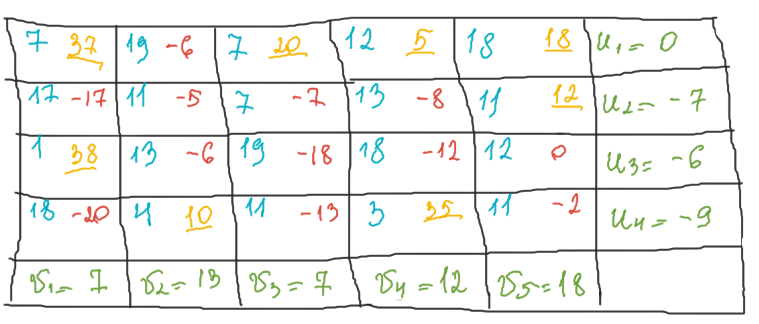 7 37 19 -6 7 20 12 5 18 18 u₁= 0
17 -17 11 -5 7 -7 13 -8 11 12 u₂= -7
1 38 13 -6 19 -18 18 -12 12 0 u₃= -6
18 -20 4 10 11 -13 3 35 11 -2 u₄= -9
v₁= 7 v₂= 13 v₃= 7 v₄=12 v₅=18